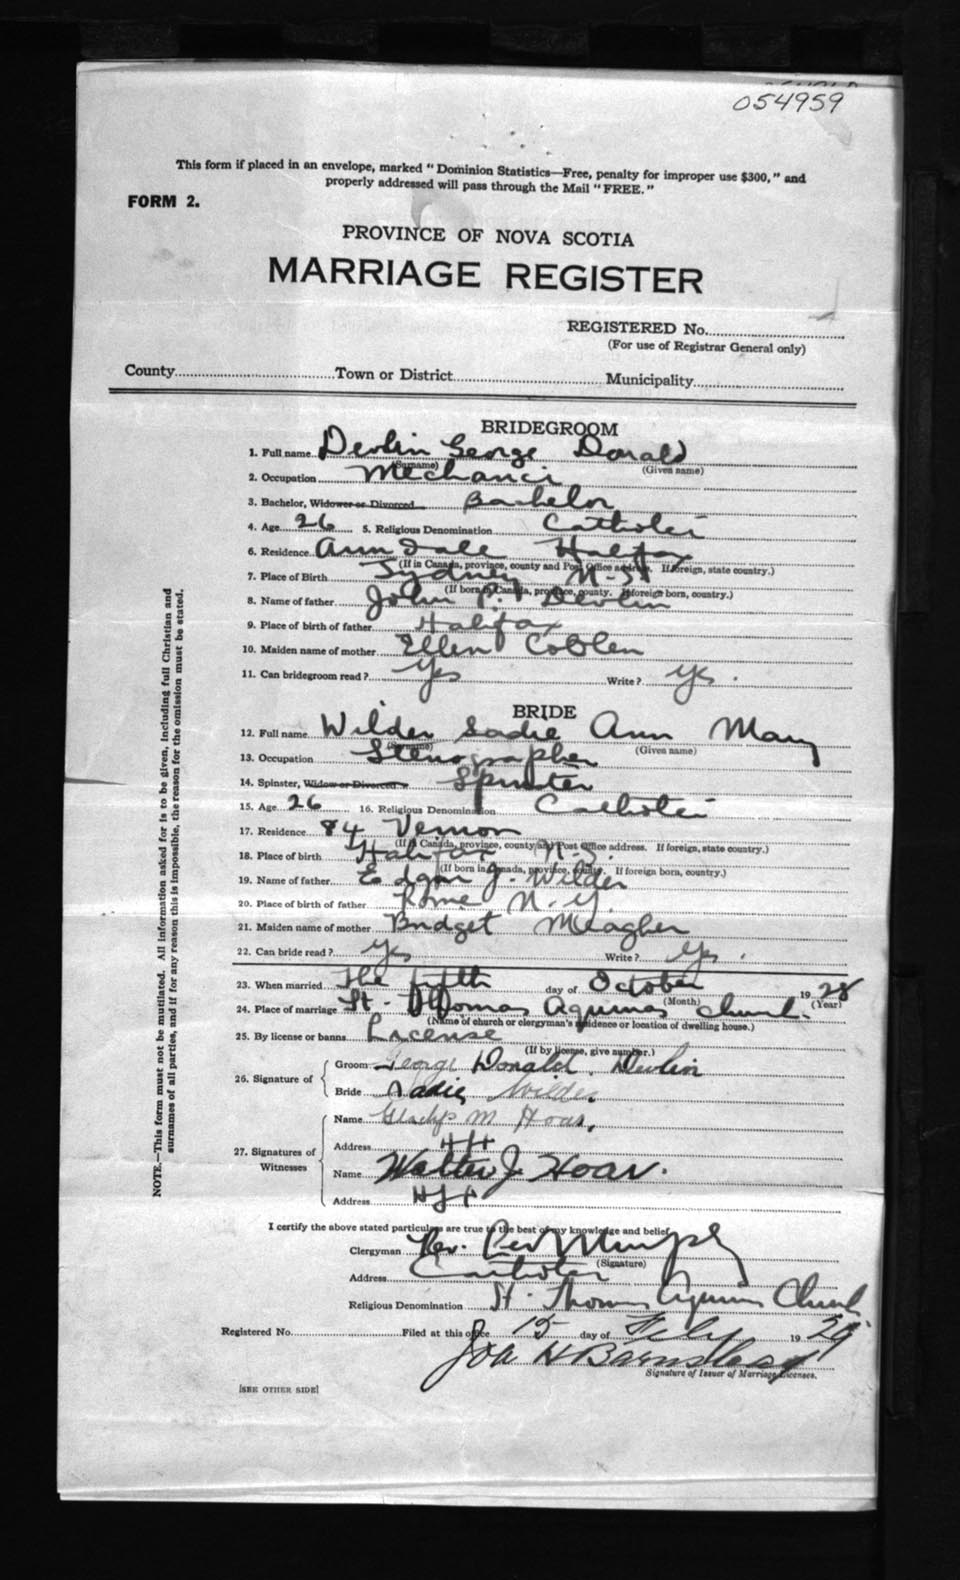 054959
This form if placed in an envelope, marked "Dominion Statistics—Free, penalty for improper use $300," and
properly addressed will pass through the Mail "FREE."
FORM 2.
PROVINCE OF NOVA SCOTIA
MARRIAGE REGISTER
REGISTERED No.
(For use of Registrar General only)
County Town or District Municipality
BRIDEGROOM
1. Full name Devlin George Donald
(Surname) (Given name)
2. Occupation Mechanci
3. Bachelor, Widower or Divorced Bachelor
4. Age 26 5. Religious Denomination Catholic
6. Residence Halifax
(If in Canada, province, county and Post Office address. If foreign, state country.)
7. Place of Birth Sydney N.S.
(If born in Canada, province, county. If foreign born, country.)
8. Name of father John P. Devlin
9. Place of birth of father Halifax
10. Maiden name of mother Ellen Coblen
11. Can bridegroom read? Yes Write? Yes.
BRIDE
12. Full name Wilder Sadie Ann Mary
(Surname) (Given name)
13. Occupation Stenographer
14. Spinster, Widow or Divorced Spinster
15. Age 26 16. Religious Denomination Catholic
17. Residence 84 Vernon
(If in Canada, province, county and Post Office address. If foreign, state country.)
18. Place of birth Halifax N.S.
(If born in Canada, province, county. If foreign born, country.)
19. Name of father Edgar J. Wilder
20. Place of birth of father Rome N.Y.
21. Maiden name of mother Bridget Meagher
22. Can bride read? Yes Write? Yes.
23. When married The fifth day of October 1928
(Month) (Year)
24. Place of marriage St. Thomas Aquinas Church.
(Name of church or clergyman's residence or location of dwelling house.)
25. By license or banns License
(If by license, give number.)
26. Signature of Groom George Donald Devlin
Bride Sadie Wilder
27. Signatures of Witnesses
Name Gladys M Hoar.
Address Hfx
Name Walter J. Hoar.
Address Hfx
I certify the above stated particulars are true to the best of my knowledge and belief.
Clergyman Rev. Murphy
(Signature)
Address Catholic
Religious Denomination St. Thomas Aquinas Church
Registered No. Filed at this office 15 day of Feb 1929
Signature of Issuer of Marriage Licenses.
[SEE OTHER SIDE]
NOTE.—This form must not be mutilated. All information asked for is to be given, including full Christian and
surnames of all parties, and if for any reason this is impossible, the reason for the omission must be stated.